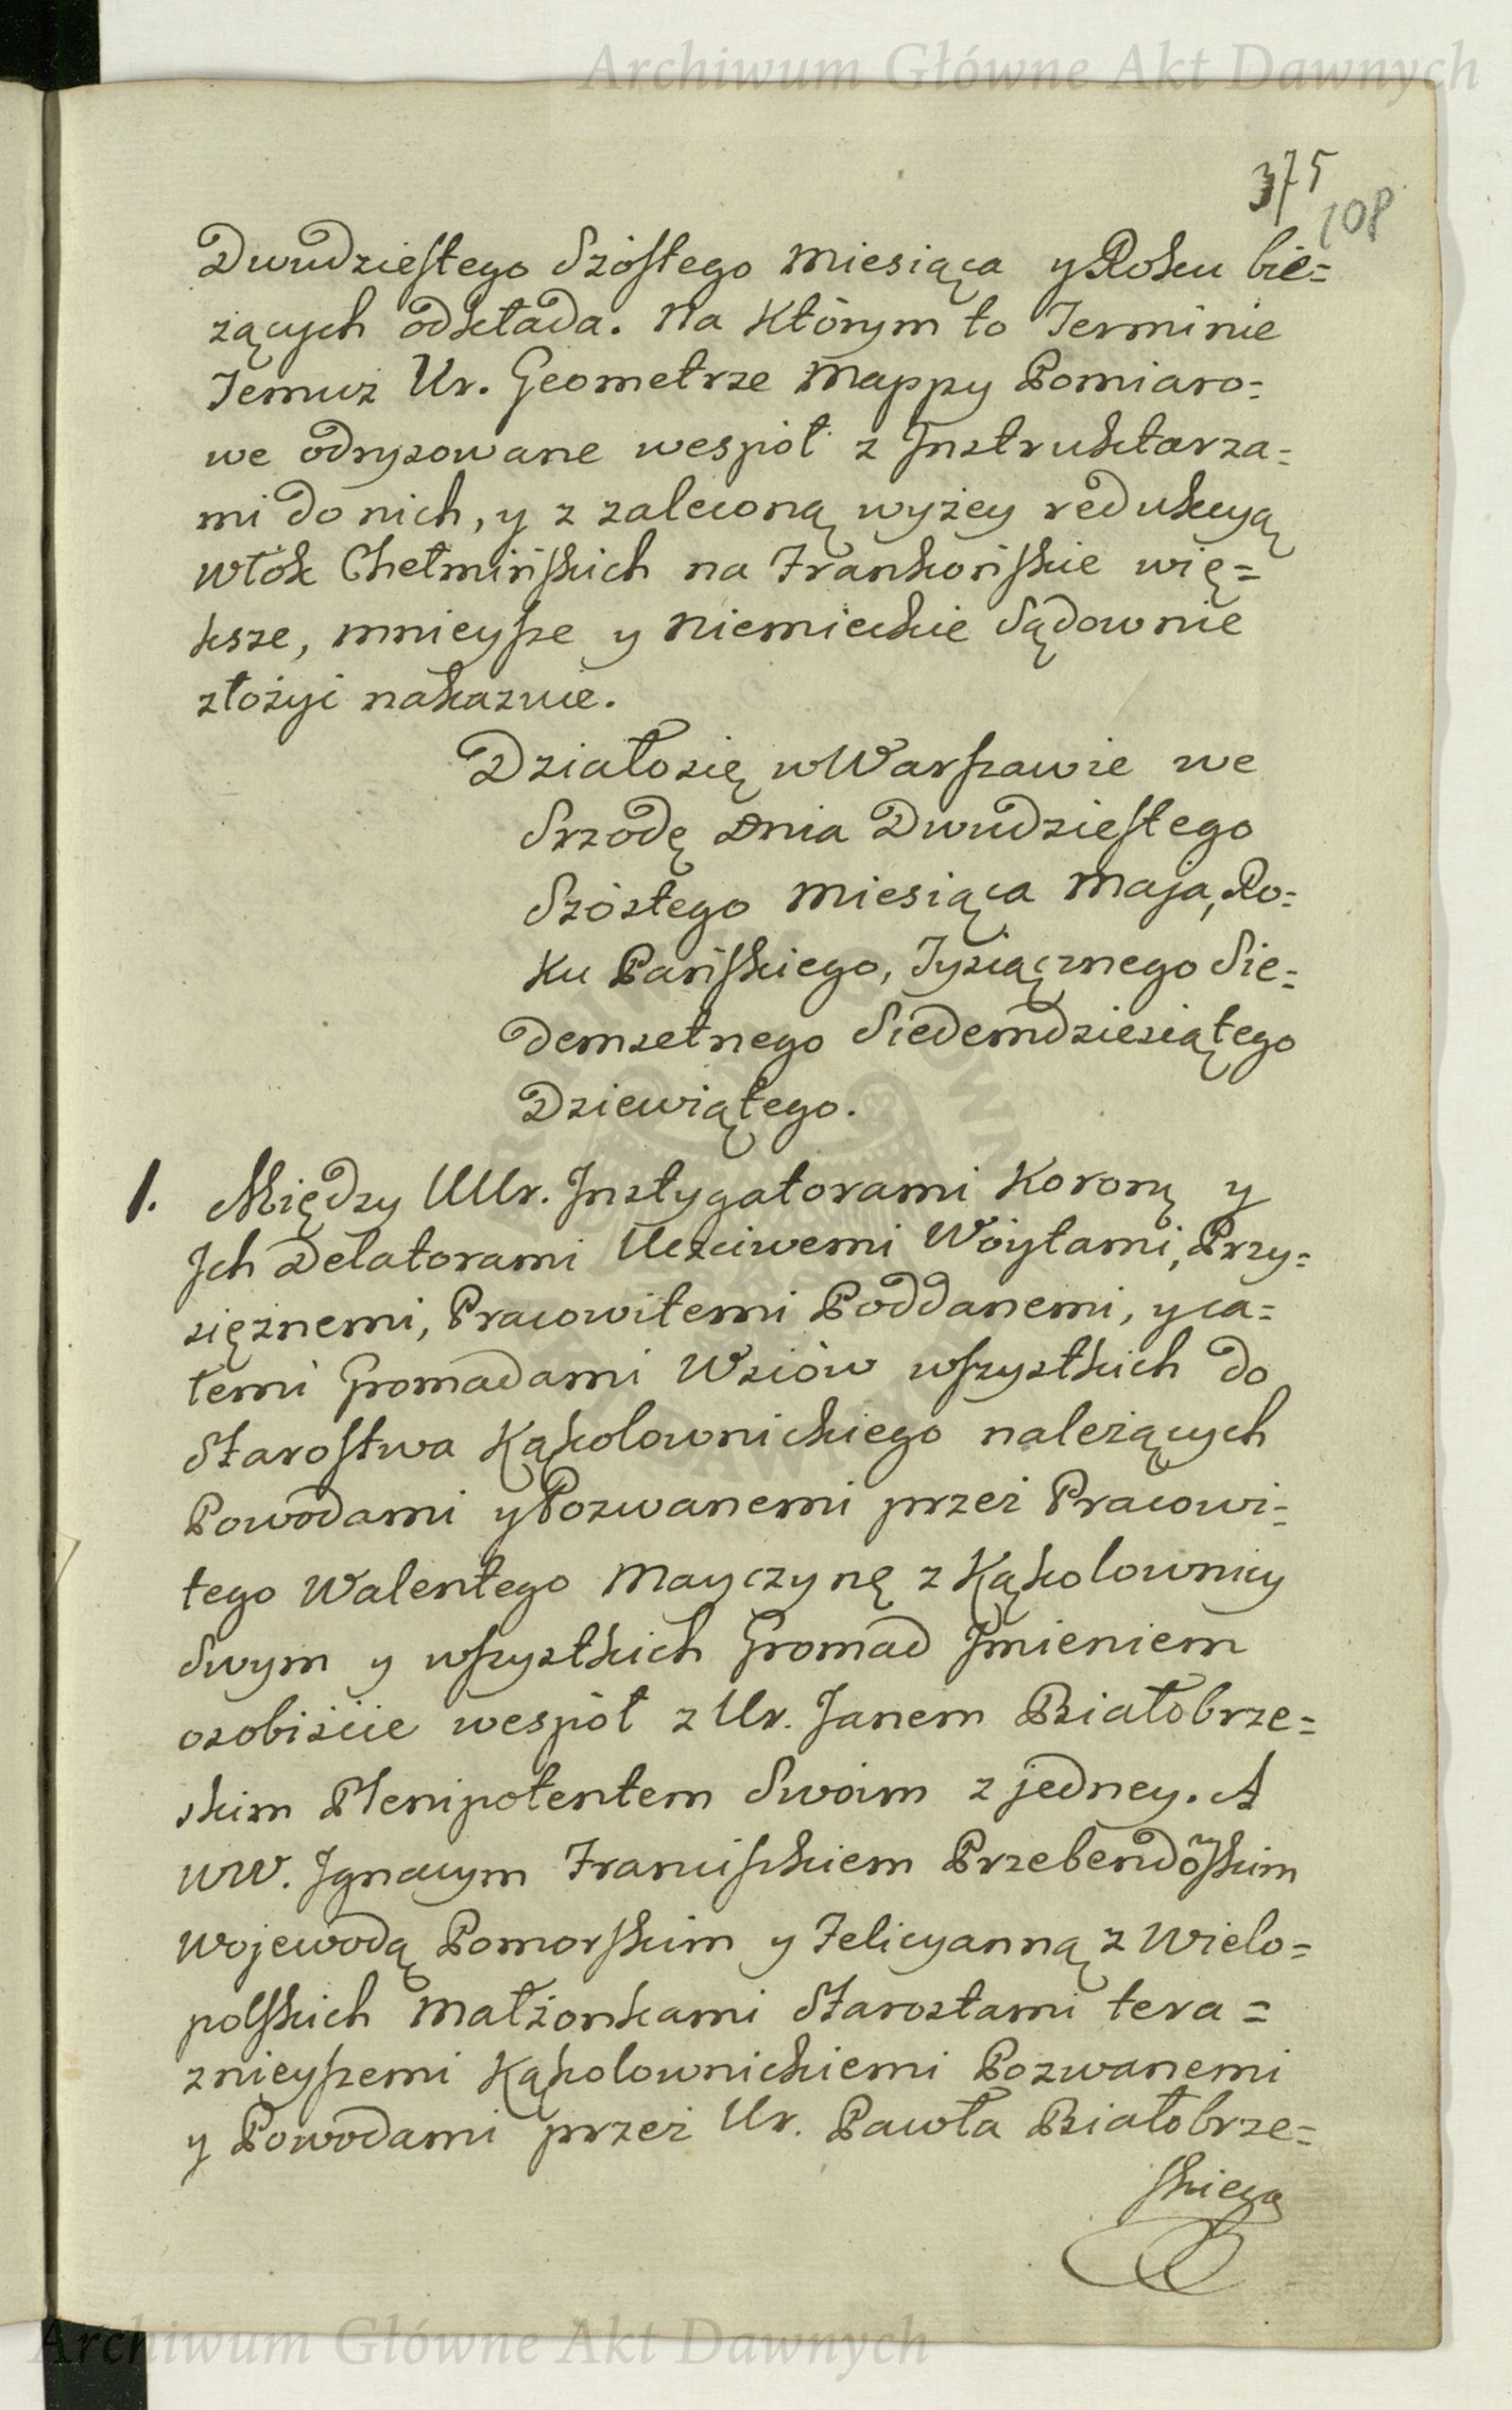 Archiwum Główne Akt Dawnych
375
108
Dwudziestego Szóstego Miesiąca y Roku bie=
żących odkłada. Na Którym to Terminie
Temuż Ur. Geometrze Mappy Pomiaro=
we odrysowane wespół z Instruktarza=
mi do nich, y z zaleconą wyżey redukcyą
Włók Chełmińskich na Frankońskie wię=
ksze, mnieysze y Niemieckie Sądownie
złożyć nakazuie.
Działo się w Warszawie we
Srzodę Dnia Dwudziestego
Szóstego Miesiąca Maja, Ro=
Ku Pańskiego, Tysiącznego Sie=
demsetnego Siedemdziesiątego
Dziewiątego.
1. Między UUr. Instygatorami Korony y
Ich Delatorami Uczciwemi Woytami, Przy=
siężnemi, Pracowitemi Poddanemi, y ca=
łemi Gromadami Wsiów wszystkich do
Starostwa Kąkolownickiego należących
Powodami y Pozwanemi przez Pracowi=
tego Walentego Mayczynę z Kąkolownicy
Swym y wszystkich Gromad Imieniem
osobiście wespół z Ur. Janem Białobrze=
skim Plenipotentem Swoim z jedney. A
WW. Ignacym Franciszkiem Przebendowskim
Wojewodą Pomorskim y Felicyanną z Wielo=
polskich Małżonkami Starostami tera=
znieyszemi Kąkolownickiemi Pozwanemi
y Powodami przez Ur. Pawła Białobrze=
skiego
Archiwum Główne Akt Dawnych